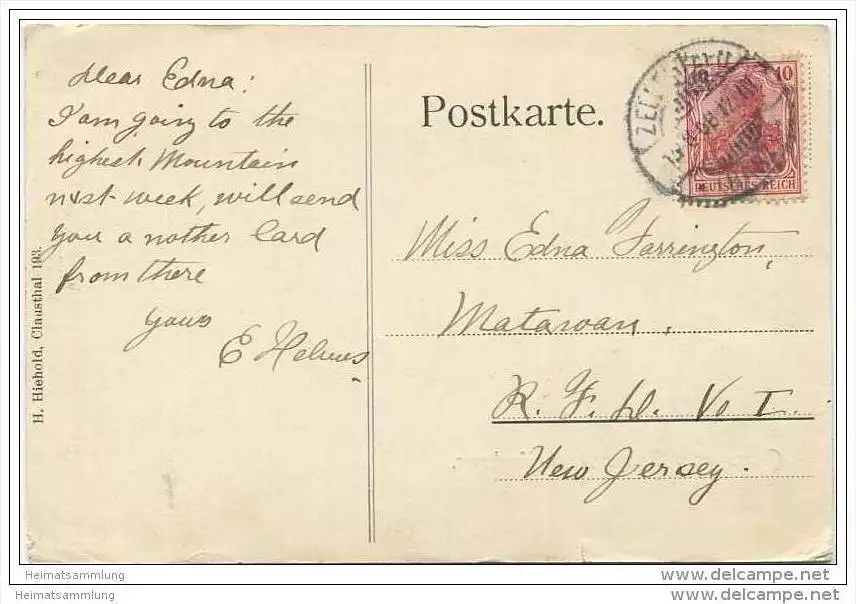 Dear Edna!
I am going to the
highest Mountain
next week, will send
you a nother Card
from there
yours
E Helmes
H. Hiehold, Clausthal 193.
Postkarte.
10
DEUTSCHES REICH
Miss Edna Farrington,
Matawan,
R. F. D. No I
New Jersey.
Heimatsammlung
Heimatsammlung
www.delcampe.net
www.delcampe.net